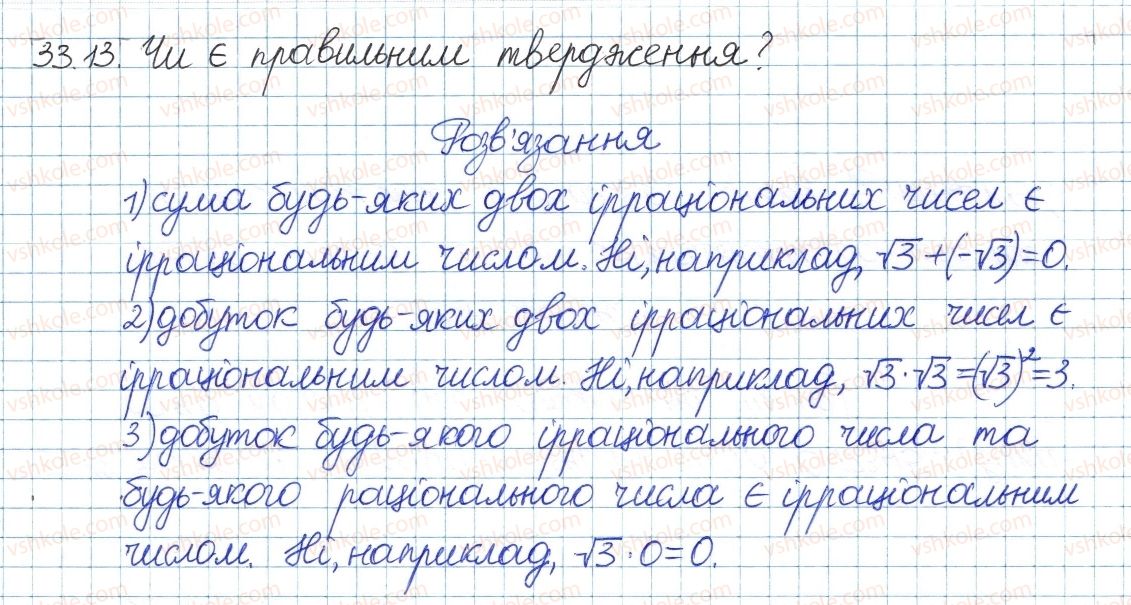 33.13. Чи є правильним твердження?
Розв'язання
1) сума будь-яких двох ірраціональних чисел є
ірраціональним числом. Ні, наприклад, √3+(-√3)=0.
2) добуток будь-яких двох ірраціональних чисел є
ірраціональним числом. Ні, наприклад, √3·√3=(√3)²=3.
3) добуток будь-якого ірраціонального числа та
будь-якого раціонального числа є ірраціональним
числом. Ні, наприклад, √3·0=0.